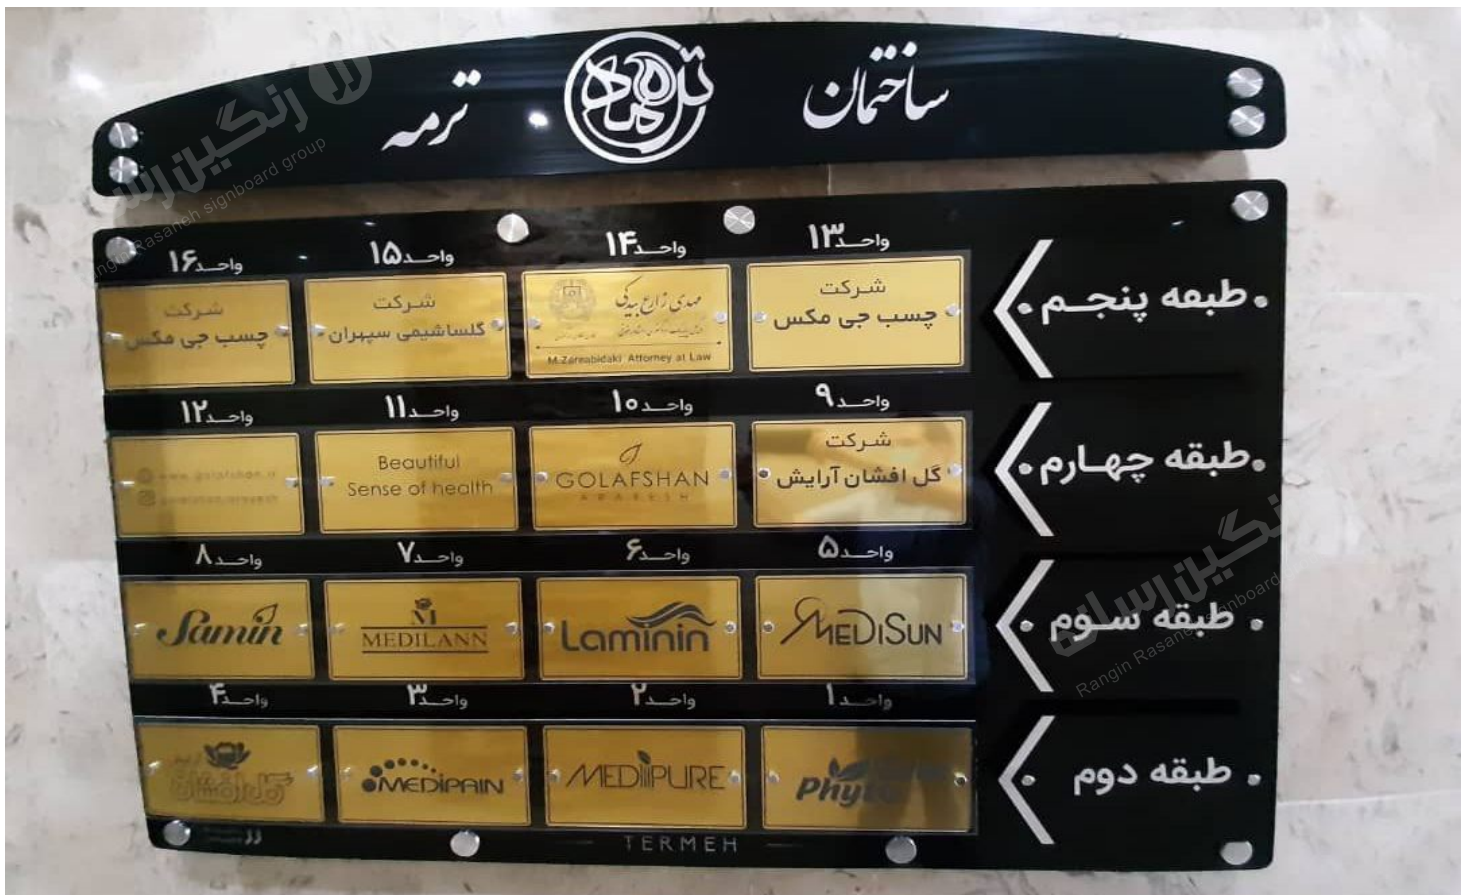 ساختمان ترمه
رنگین رسانه
Rangin Rasaneh signboard group
طبقه پنجم
واحد ۱۳
شرکت
چسب جی مکس
واحد ۱۴
مهدی زارع بیدکی
M.Zareabidaki Attorney at Law
واحد ۱۵
شرکت
گلساشیمی سپهران
واحد ۱۶
شرکت
چسب جی مکس
طبقه چهارم
واحد ۹
شرکت
گل افشان آرایش
واحد ۱۰
GOLAFSHAN
ARAYESH
واحد ۱۱
Beautiful
Sense of health
واحد ۱۲
www.golafshan.ir
طبقه سوم
واحد ۵
MEDISUN
واحد ۶
Laminin
واحد ۷
M
MEDILANN
واحد ۸
Samin
طبقه دوم
واحد ۱
Phyto
واحد ۲
MEDIPURE
واحد ۳
MEDIPAIN
واحد ۴
گل افشان
TERMEH
رنگین رسانه
Rangin Rasaneh signboard